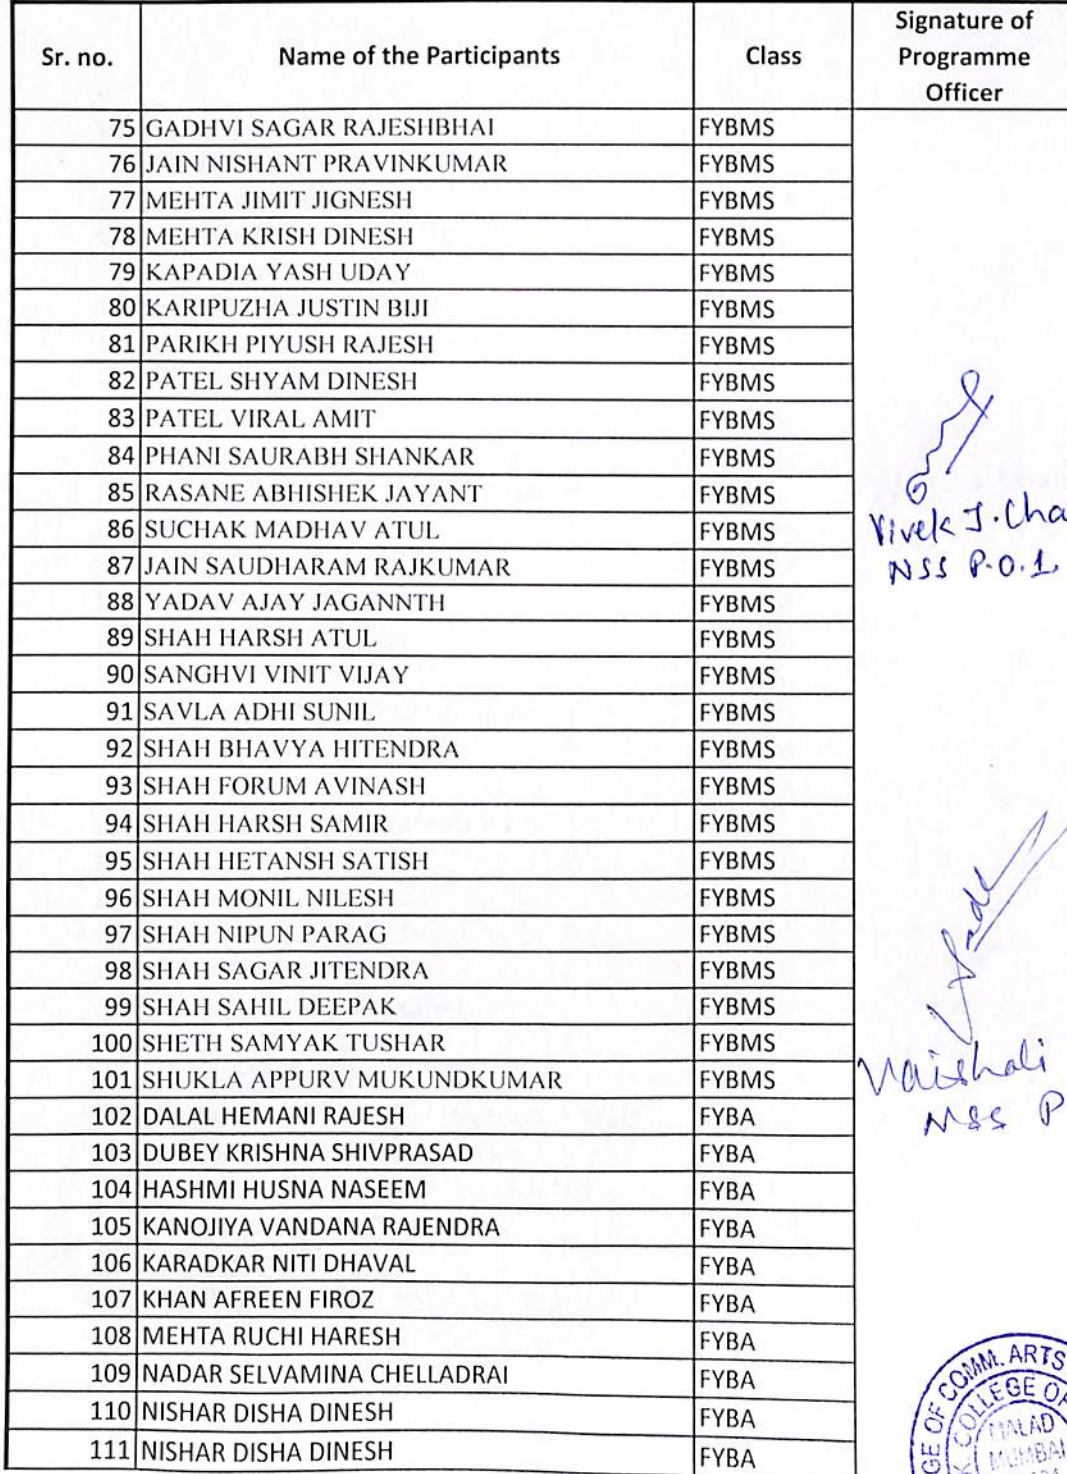 Sr. no. Name of the Participants Class Signature of Programme Officer
75 GADHVI SAGAR RAJESHBHAI FYBMS
76 JAIN NISHANT PRAVINKUMAR FYBMS
77 MEHTA JIMIT JIGNESH FYBMS
78 MEHTA KRISH DINESH FYBMS
79 KAPADIA YASH UDAY FYBMS
80 KARIPUZHA JUSTIN BIJI FYBMS
81 PARIKH PIYUSH RAJESH FYBMS
82 PATEL SHYAM DINESH FYBMS
83 PATEL VIRAL AMIT FYBMS
84 PHANI SAURABH SHANKAR FYBMS
85 RASANE ABHISHEK JAYANT FYBMS
86 SUCHAK MADHAV ATUL FYBMS
Vivek J. Cha
87 JAIN SAUDHARAM RAJKUMAR FYBMS
NSS P.O.1
88 YADAV AJAY JAGANNTH FYBMS
89 SHAH HARSH ATUL FYBMS
90 SANGHVI VINIT VIJAY FYBMS
91 SAVLA ADHI SUNIL FYBMS
92 SHAH BHAVYA HITENDRA FYBMS
93 SHAH FORUM AVINASH FYBMS
94 SHAH HARSH SAMIR FYBMS
95 SHAH HETANSH SATISH FYBMS
96 SHAH MONIL NILESH FYBMS
97 SHAH NIPUN PARAG FYBMS
98 SHAH SAGAR JITENDRA FYBMS
99 SHAH SAHIL DEEPAK FYBMS
100 SHETH SAMYAK TUSHAR FYBMS
101 SHUKLA APPURV MUKUNDKUMAR FYBMS
Vaishali
102 DALAL HEMANI RAJESH FYBA
NSS P
103 DUBEY KRISHNA SHIVPRASAD FYBA
104 HASHMI HUSNA NASEEM FYBA
105 KANOJIYA VANDANA RAJENDRA FYBA
106 KARADKAR NITI DHAVAL FYBA
107 KHAN AFREEN FIROZ FYBA
108 MEHTA RUCHI HARESH FYBA
109 NADAR SELVAMINA CHELLADRAI FYBA
110 NISHAR DISHA DINESH FYBA
111 NISHAR DISHA DINESH FYBA
GE OF COMM. ARTS
COLLEGE OF
MALAD
MUMBAI